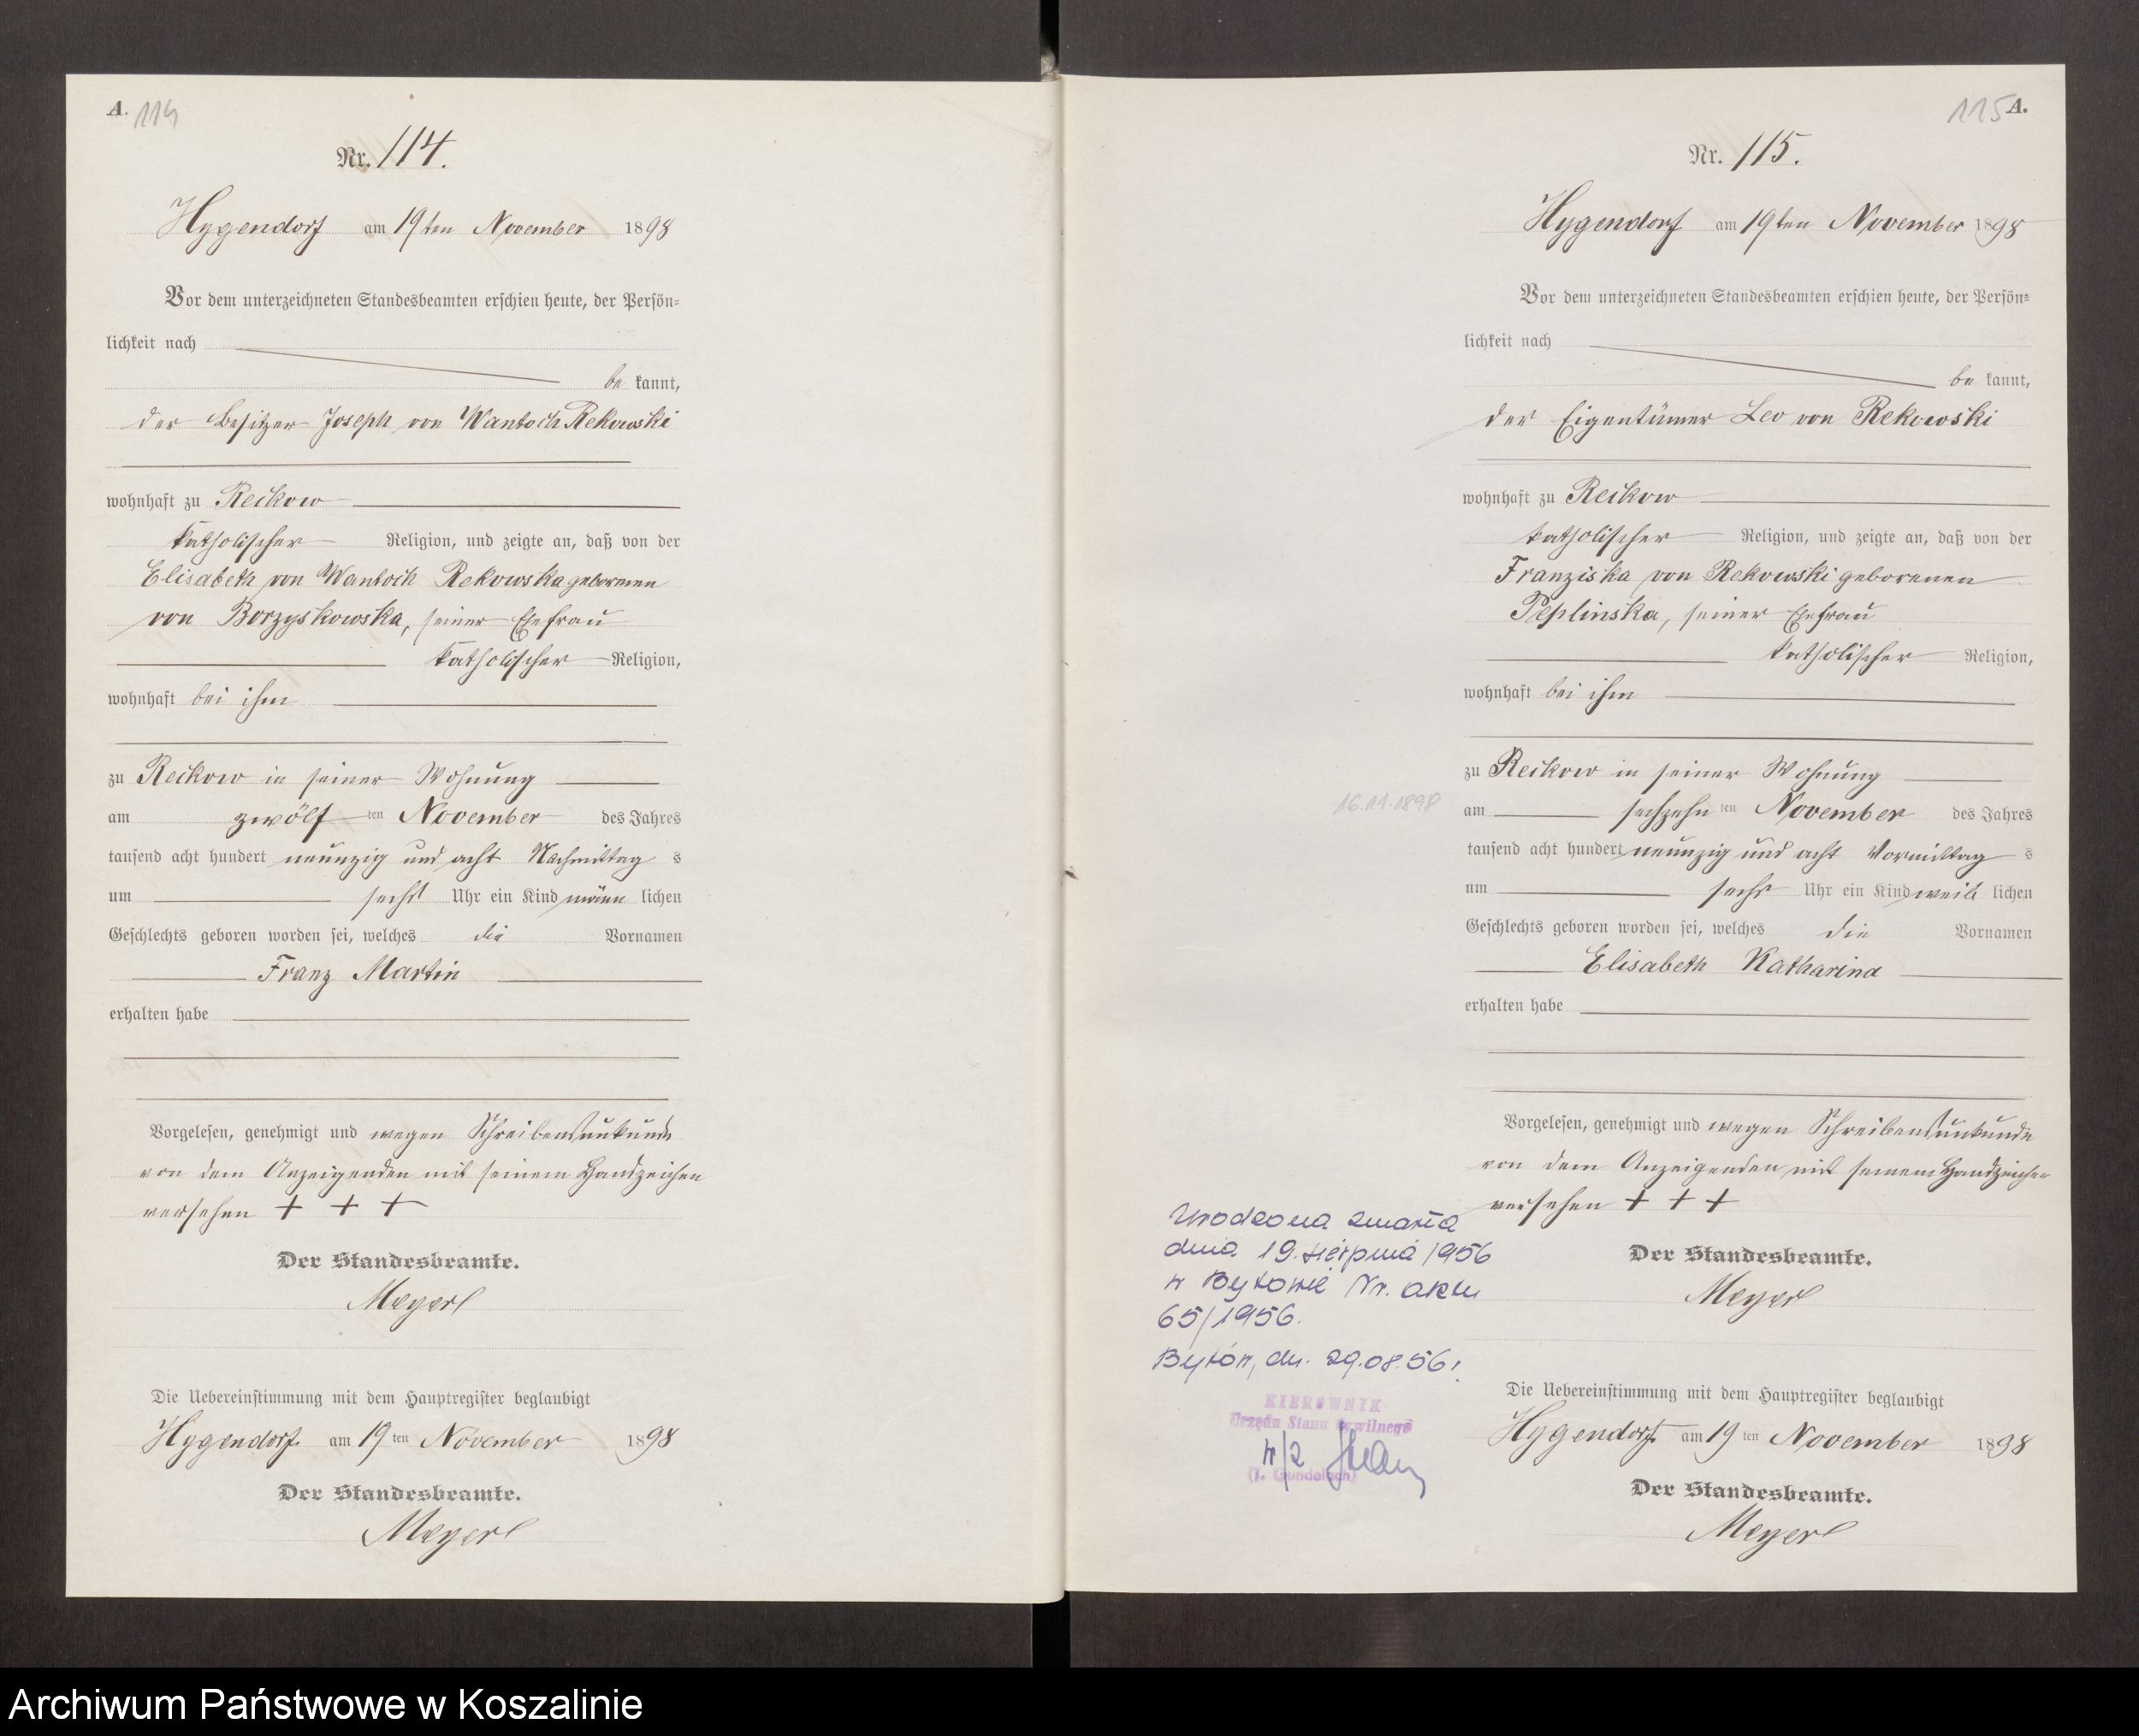 A. 114
Nr. 114.
Hygendorf am 19ten November 1898
Vor dem unterzeichneten Standesbeamten erschien heute, der Persön-
lichkeit nach
be kannt,
der Besitzer Joseph von Wantoch Rekowski
wohnhaft zu Reckow
katholischer Religion, und zeigte an, daß von der
Elisabeth von Wantoch Rekowska geborenen
von Borzyskowska, seiner Ehefrau
katholischer Religion,
wohnhaft bei ihm
zu Reckow in seiner Wohnung
am zwölf ten November des Jahres
tausend acht hundert neunzig und acht Nachmittag s
um sechs Uhr ein Kind männ lichen
Geschlechts geboren worden sei, welches die Vornamen
Franz Martin
erhalten habe
Vorgelesen, genehmigt und wegen Schreibensunkunde
von dem Anzeigenden mit seinem Handzeichen
versehen + + +
Der Standesbeamte.
Meyerl
Die Uebereinstimmung mit dem Hauptregister beglaubigt
Hygendorf. am 19 ten November 1898
Der Standesbeamte.
Meyerl
115 A.
Nr. 115.
Hygendorf am 19ten November 1898
Vor dem unterzeichneten Standesbeamten erschien heute, der Persön-
lichkeit nach
be kannt,
der Eigentümer Leo von Rekowski
wohnhaft zu Reckow
katholischer Religion, und zeigte an, daß von der
Franziska von Rekowski geborenen
Peplinska, seiner Ehefrau
katholischer Religion,
wohnhaft bei ihm
zu Reckow in seiner Wohnung
16.11.1898
am sechzehn ten November des Jahres
tausend acht hundert neunzig und acht Vormittag s
um sechs Uhr ein Kind weib lichen
Geschlechts geboren worden sei, welches die Vornamen
Elisabeth Katharina
erhalten habe
Vorgelesen, genehmigt und wegen Schreibensunkunde
von dem Anzeigenden mit seinem Handzeichen
versehen + + +
Der Standesbeamte.
Meyerl
Die Uebereinstimmung mit dem Hauptregister beglaubigt
Hygendorf. am 19 ten November 1898
Der Standesbeamte.
Meyerl
Urodzona zmarła
dnia 19. sierpnia 1956
w Bytowie Nr. aktu
65/1956.
Bytów, dn. 29.08.56r.
KIEROWNIK
Urzędu Stanu Cywilnego
w/z
Archiwum Państwowe w Koszalinie